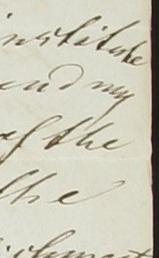 institute
end my
of the
the